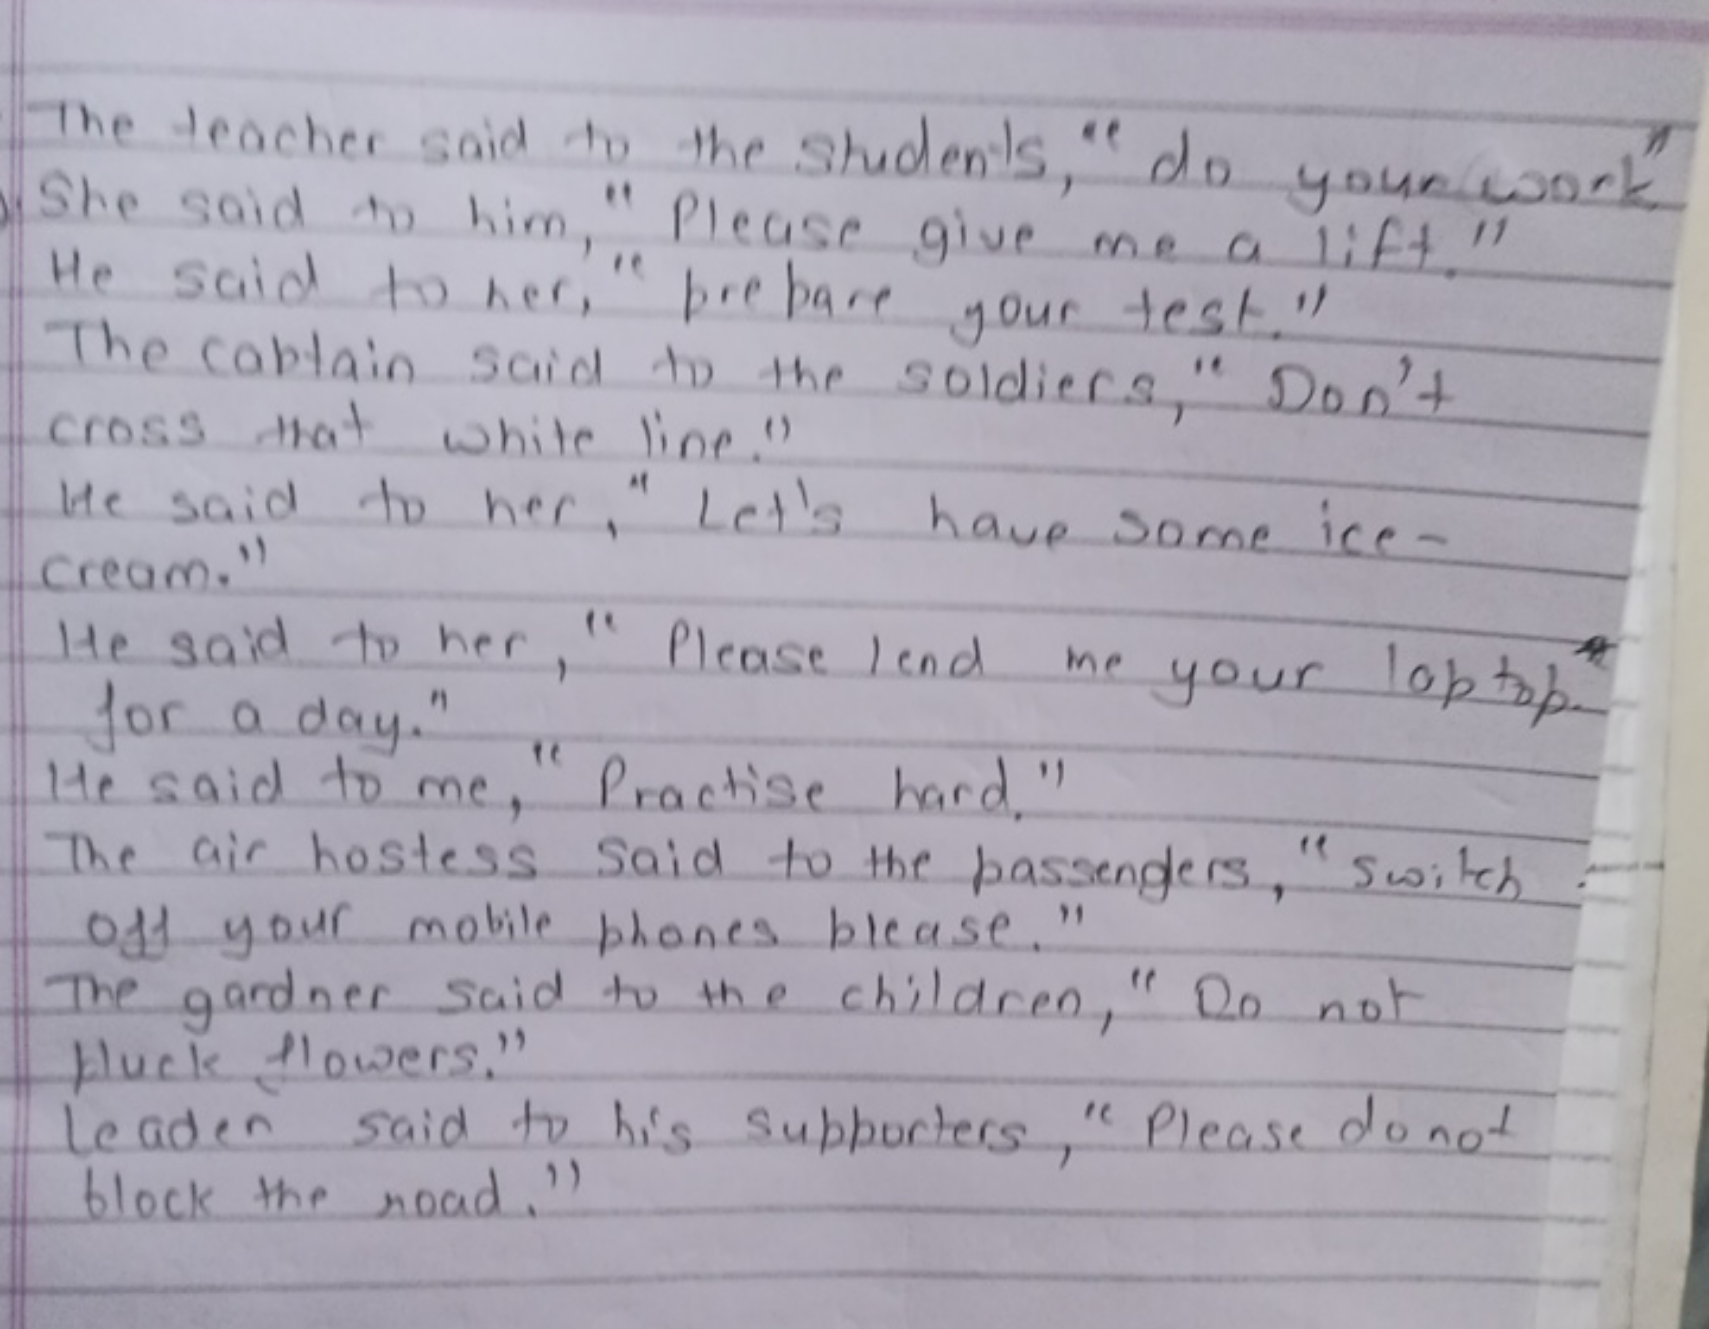 The teacher said to the students, "do your work"
She said to him, "Please give me a lift."
He said to her, "prepare your test."
The captain said to the soldiers, "Don't
cross that white line."
He said to her, "Let's have some ice-
cream."
He said to her, "Please lend me your laptop
for a day."
He said to me, "Practise hard."
The air hostess said to the passengers, "switch
off your mobile phones please."
The gardner said to the children, "Do not
pluck flowers."
Leader said to his supporters, "Please do not
block the road."